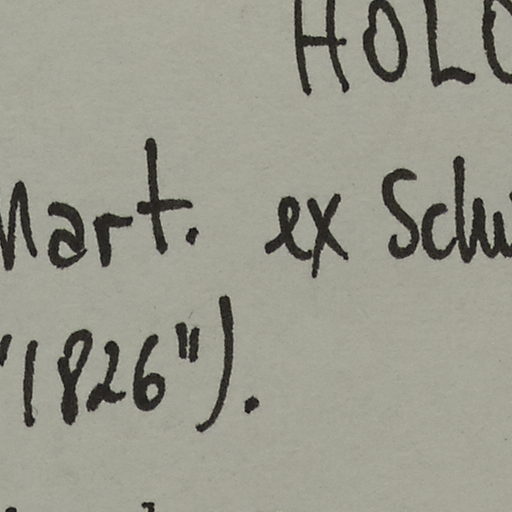 HOLO
Mart. ex Sch
"1826").